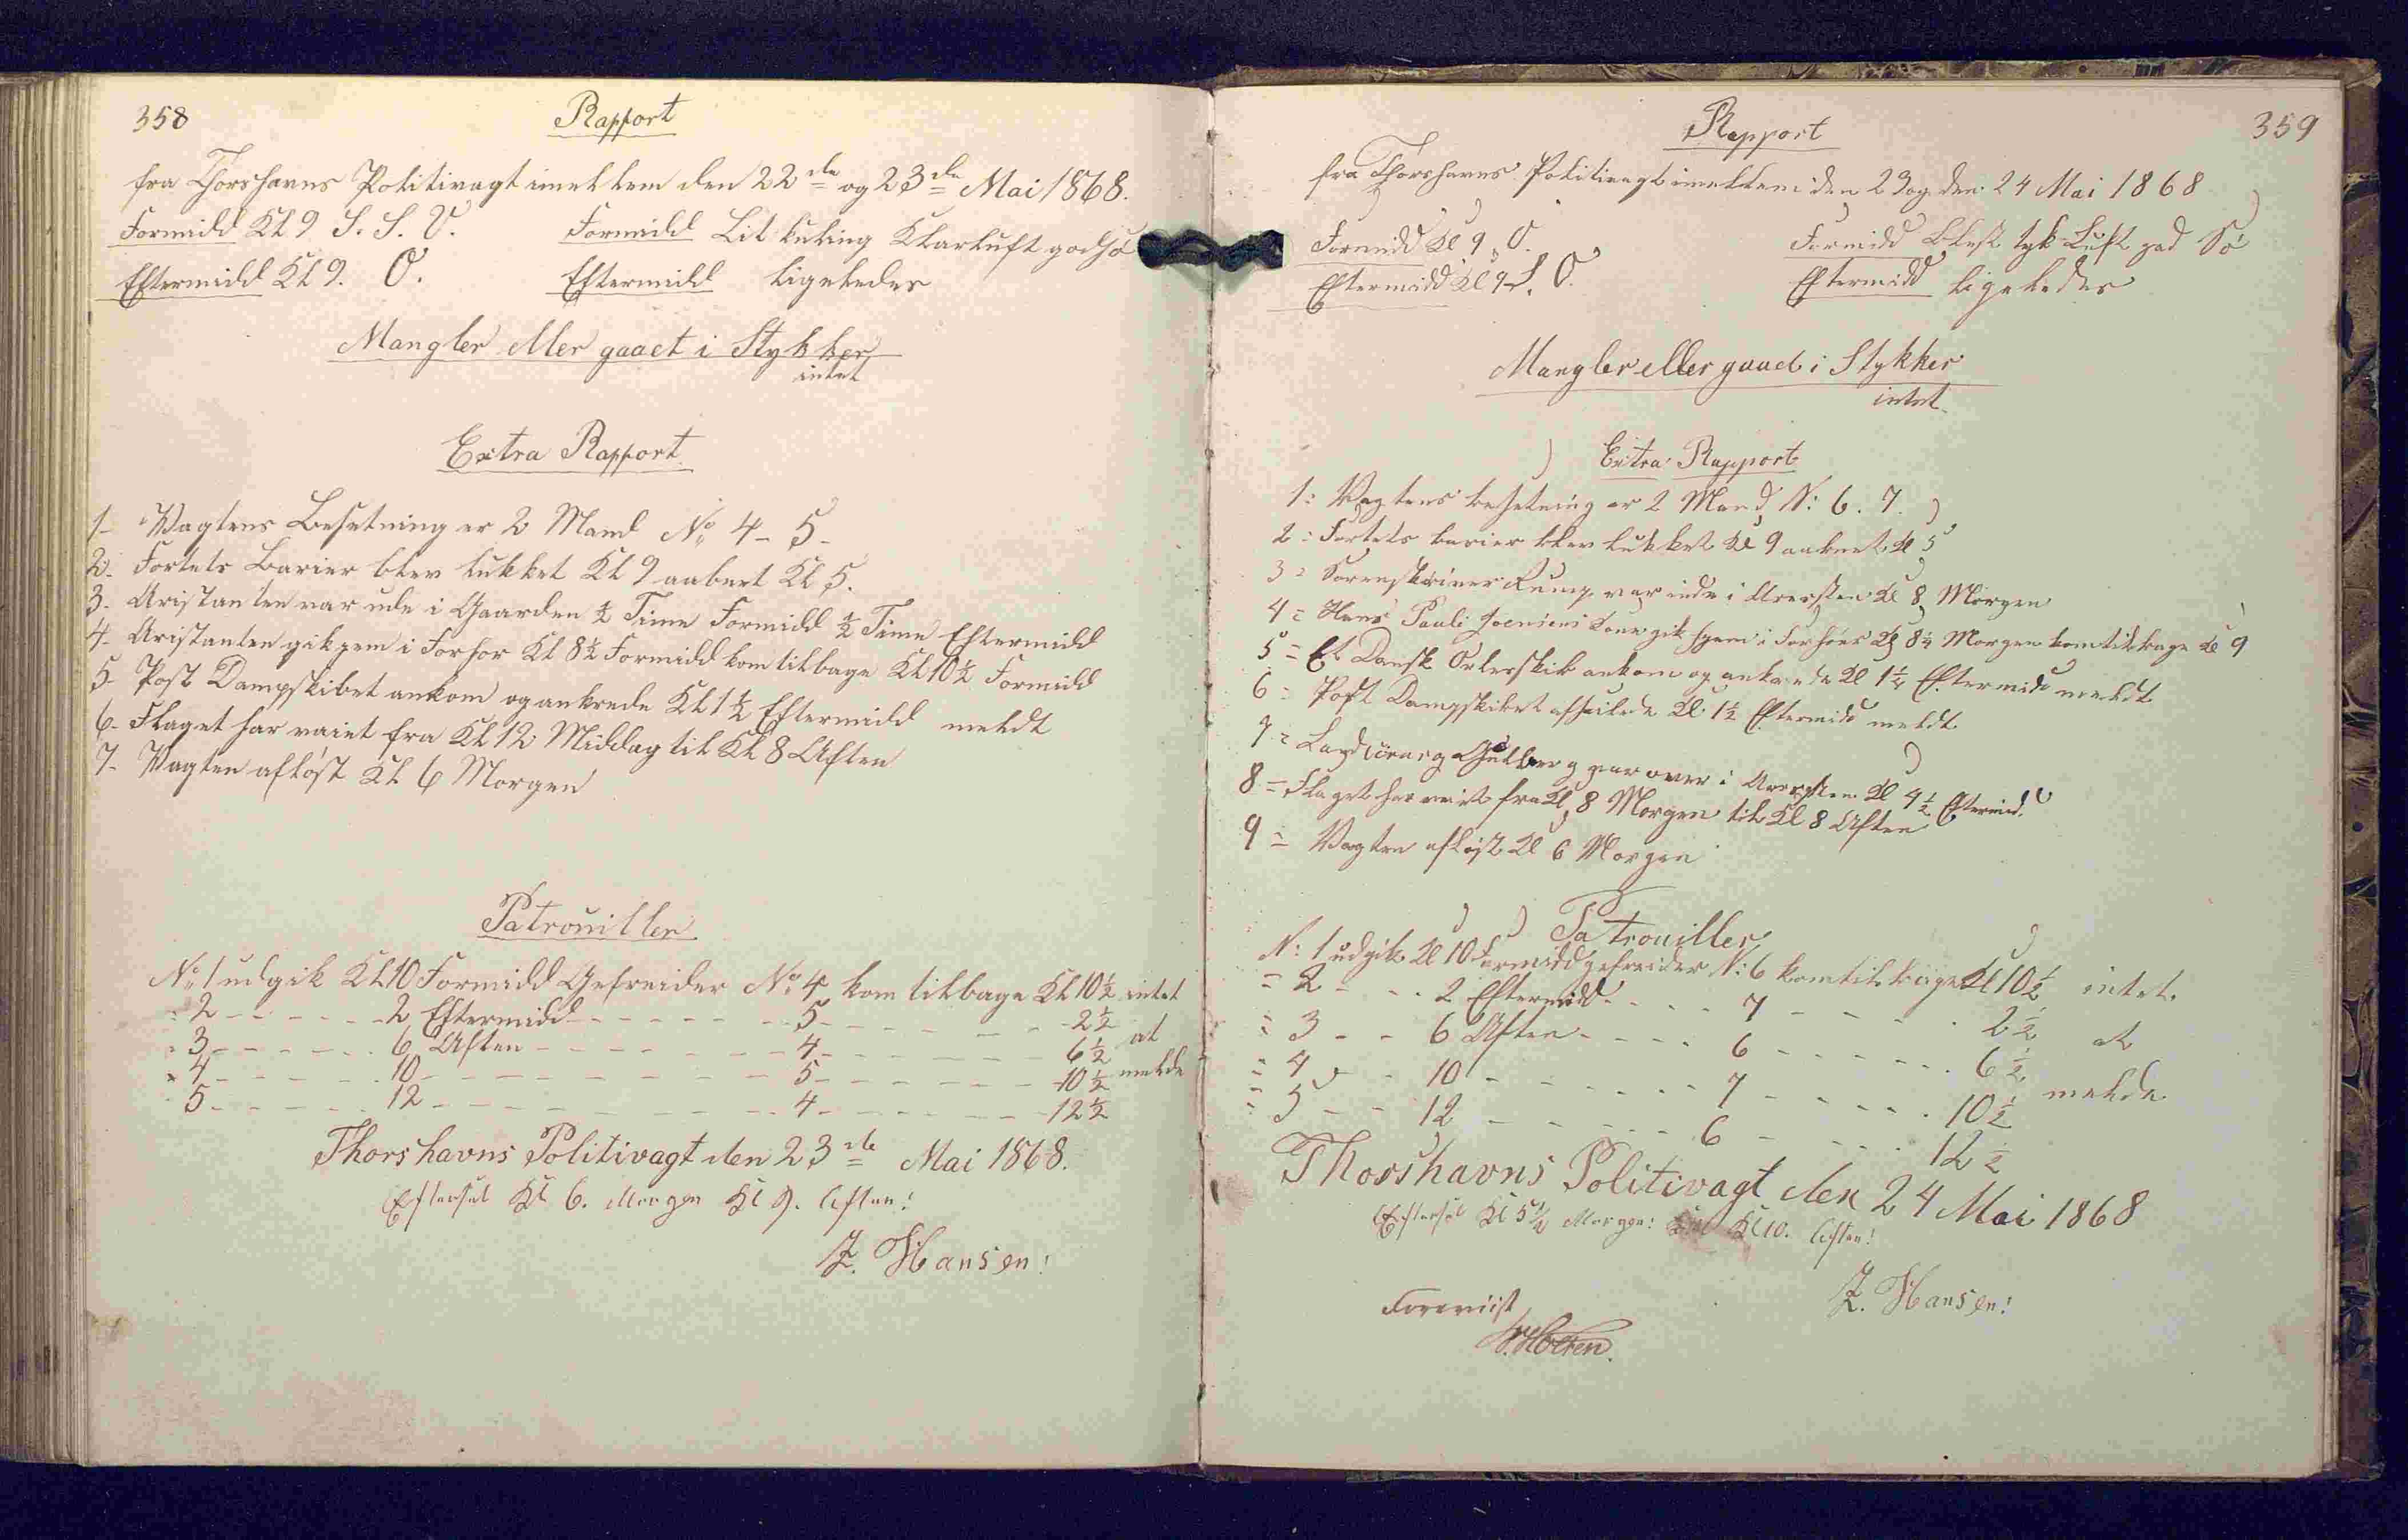 358
Rapport
fra Thorshavns Politivagt imellem den 22de og 23de Mai 1868.
Formidd Kl 9 S. S. O. Formidd Lit kuling Klarluft god Sø
Eftermidd Kl 9. O. Eftermidd ligeledes
Mangler eller gaaet i Stykker
intet
Extra Rapport
1- Vagtens Besetning er 2 Mand No 4- 5-
2- Fortets Barier blev lukket Kl 9 aabnet Kl 5.
3- Aristanten var ude i Gaarden ½ Time Formidd ½ Time Eftermidd
4- Aristanten gik hjem i Forhor Kl 8½ Formidd kom tilbage Kl 10½ Formidd
5- Post Dampskibet ankom og ankrede Kl 1½ Eftermidd meldt
6- Flaget har vaiet fra Kl 12 Middag til Kl 8 Aften
7- Vagten afløst Kl 6 Morgen
Patrouiller
No 1 udgik Kl 10 Formidd Gefreider No 4 kom tilbage Kl 10½ intet
" 2 - - - - - 2 Eftermidd - - - - - 5 - - - - - 2½
" 3 - - - - - 6 Aften - - - - - 4 - - - - - 6½ at
" 4 - - - - - 10 - - - - - 5 - - - - - 10½ melde
" 5 - - - - - 12 - - - - - 4 - - - - - 12½
Thorshavns Politivagt den 23de Mai 1868.
Efterset Kl 6. Morgen Kl 9. Aften!
Z. Hansen!
359
Rapport
fra Thorshavns Politivagt imellem den 23 og den 24 Mai 1868
Formidd Kl 9 O. Formidd Blest tyk Luft god Sø
Eftermidd Kl 9 S. O. Eftermidd ligeledes
Mangler eller gaaet i Stykker
intet
Extra Rapport
1: Vagtens besetning er 2 Mand N: 6. 7.
2: Fortets barier blev lukket Kl 9 aabnet Kl 5
3= Sorenskriver Rump var inde i Aresten Kl 8 Morgen
4= Hans Pauli Joensens Kone gik hjem i Forhoer Kl 8¼ Morgen kom tilbage Kl 9
5= Et Dansk Orlesskib ankom og ankrede Kl 1¼ Eftermidd meldt
6= Post Dampskibet afseilede Kl 1½ Eftermidd meldt
7= Gulberg var over i Aresten Kl 4½ Eftermid.
8= Flaget har veiet fra Kl 8 Morgen til Kl 8 Aften
9= Vagten afløst Kl 6 Morgen
Patrouiller
N: 1 udgik Kl 10 Formidd gefreider N: 6 kom tilbage Kl 10½ intet
= 2 - - - 2 Eftermidd - - - - 7 - - - - 2½
= 3 - - 6 Aften - - - - 6 - - - - 6½ at
= 4 - - 10 - - - - 7 - - - - 10½ melde
= 5 - - 12 - - - - 6 - - - - 12½
Thorshavns Politivagt den 24 Mai 1868
Efterset Kl 5½ Morgen: Kl 10. Aften!
Z. Hansen!
Foreviist
HHolten.